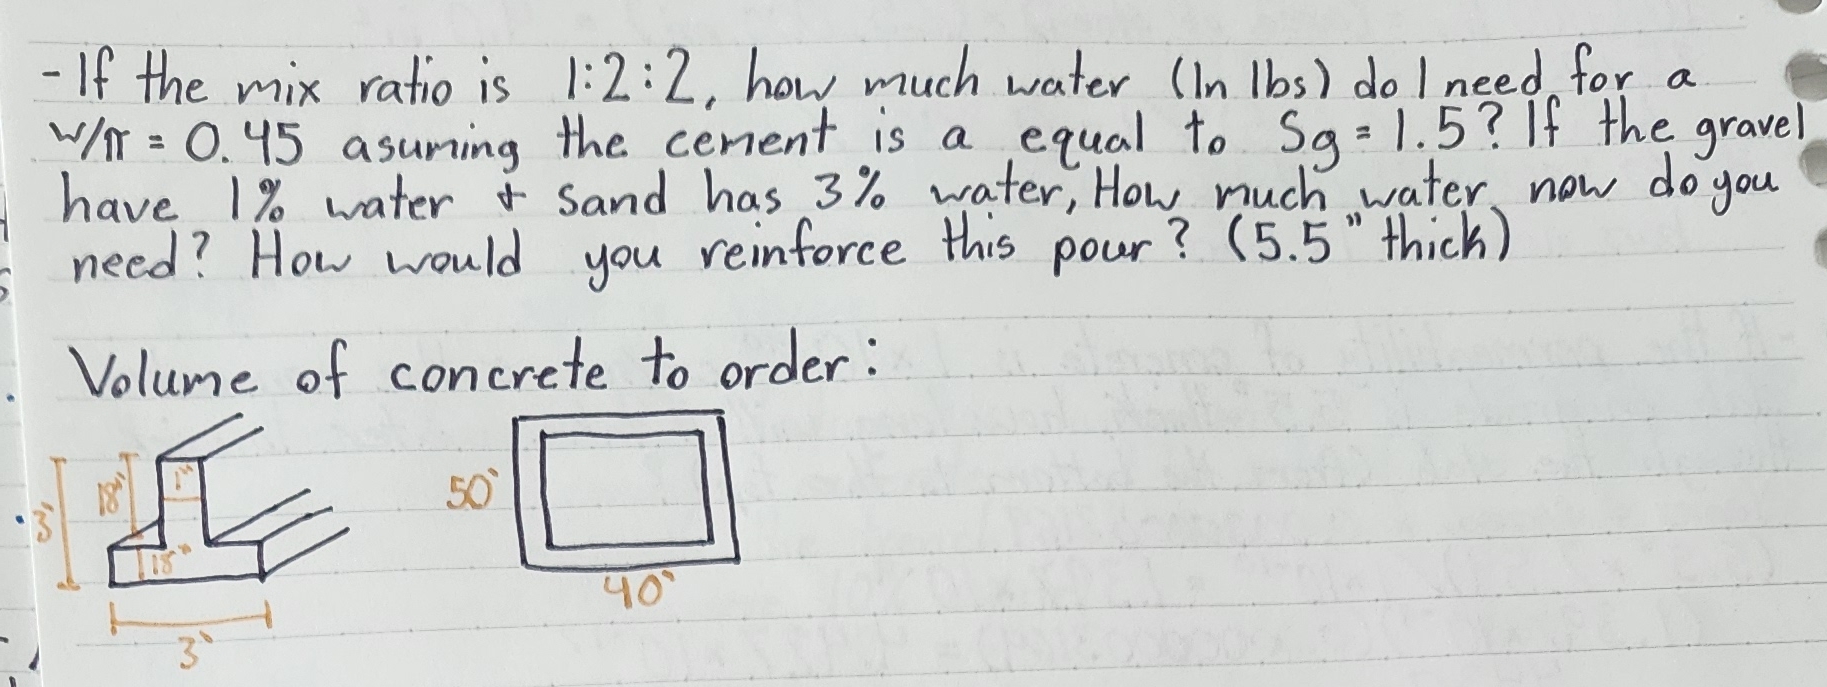 - If the mix ratio is 1:2:2, how much water (In lbs) do I need for a
w/π = 0.45 asuming the cement is a equal to Sg = 1.5? If the gravel
have 1% water & sand has 3% water, How much water now do you
need? How would you reinforce this pour? (5.5" thick)
Volume of concrete to order:
3' 18" 1' 50'
18"
40'
3'